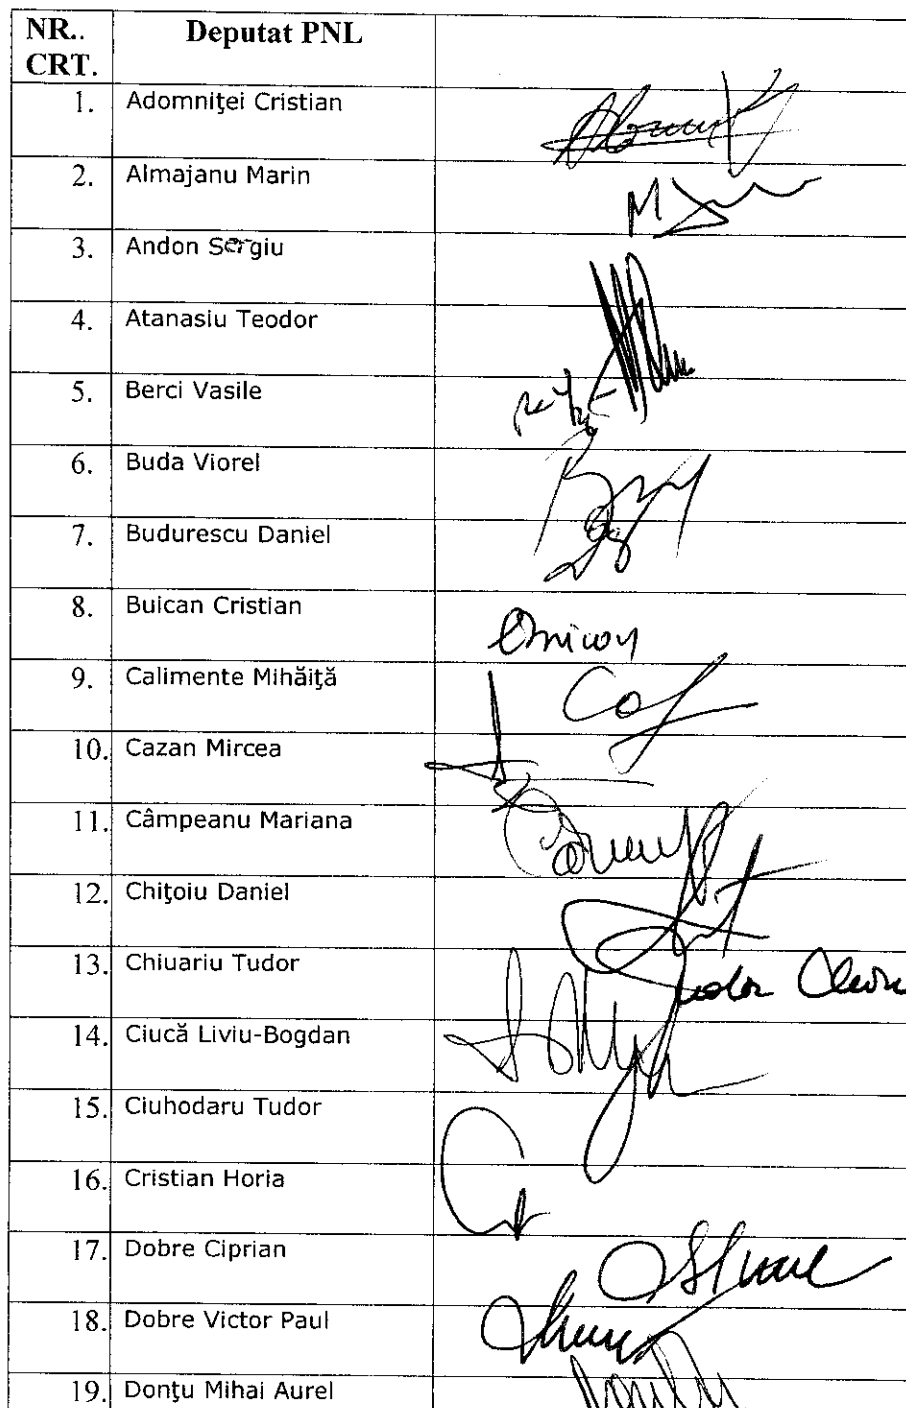 NR.. Deputat PNL
CRT.
1. Adomniţei Cristian
2. Almajanu Marin
3. Andon Sergiu
4. Atanasiu Teodor
5. Berci Vasile
6. Buda Viorel
7. Budurescu Daniel
8. Buican Cristian
9. Calimente Mihăiţă
10. Cazan Mircea
11. Câmpeanu Mariana
12. Chiţoiu Daniel
13. Chiuariu Tudor
Tudor
14. Ciucă Liviu-Bogdan
15. Ciuhodaru Tudor
16. Cristian Horia
17. Dobre Ciprian
18. Dobre Victor Paul
19. Donţu Mihai Aurel